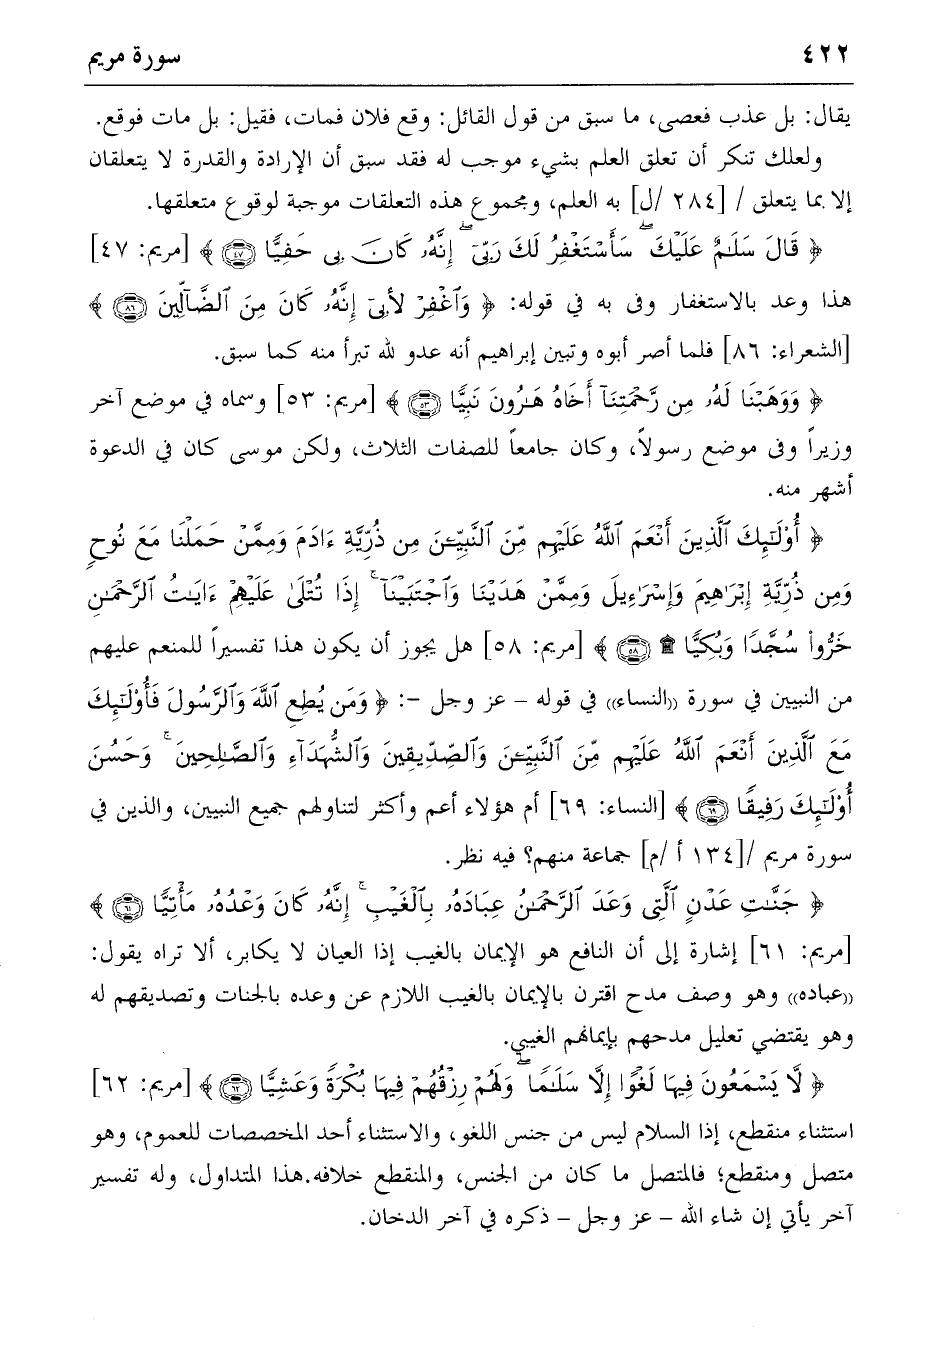 ٤٢٢ سورة مريم
يقال: بل عذب فعصى، ما سبق من قول القائل: وقع فلان فمات، فقيل: بل مات فوقع.
ولعلك تنكر أن تعلق العلم بشيء موجب له فقد سبق أن الإرادة والقدرة لا يتعلقان
إلا بما يتعلق / [٢٨٤ /ل] به العلم، ومجموع هذه التعلقات موجبة لوقوع متعلقها.
﴿ قَالَ سَلَٰمٌ عَلَيْكَ ۖ سَأَسْتَغْفِرُ لَكَ رَبِّىٓ ۖ إِنَّهُۥ كَانَ بِى حَفِيًّا ٤٧ ﴾ [مريم: ٤٧]
هذا وعد بالاستغفار وفى به في قوله: ﴿ وَٱغْفِرْ لِأَبِىٓ إِنَّهُۥ كَانَ مِنَ ٱلضَّآلِّينَ ٨٦ ﴾
[الشعراء: ٨٦] فلما أصر أبوه وتبين إبراهيم أنه عدو لله تبرأ منه كما سبق.
﴿ وَوَهَبْنَا لَهُۥ مِن رَّحْمَتِنَآ أَخَاهُ هَٰرُونَ نَبِيًّا ٥٣ ﴾ [مريم: ٥٣] وسماه في موضع آخر
وزيراً وفى موضع رسولاً، وكان جامعاً للصفات الثلاث، ولكن موسى كان في الدعوة
أشهر منه.
﴿ أُو۟لَٰٓئِكَ ٱلَّذِينَ أَنْعَمَ ٱللَّهُ عَلَيْهِم مِّنَ ٱلنَّبِيِّۦنَ مِن ذُرِّيَّةِ ءَادَمَ وَمِمَّنْ حَمَلْنَا مَعَ نُوحٍ
وَمِن ذُرِّيَّةِ إِبْرَٰهِيمَ وَإِسْرَٰٓءِيلَ وَمِمَّنْ هَدَيْنَا وَٱجْتَبَيْنَآ ۚ إِذَا تُتْلَىٰ عَلَيْهِمْ ءَايَٰتُ ٱلرَّحْمَٰنِ
خَرُّوا۟ سُجَّدًا وَبُكِيًّا ۩ ٥٨ ﴾ [مريم: ٥٨] هل يجوز أن يكون هذا تفسيراً للمنعم عليهم
من النبيين في سورة «النساء» في قوله – عز وجل –: ﴿ وَمَن يُطِعِ ٱللَّهَ وَٱلرَّسُولَ فَأُو۟لَٰٓئِكَ
مَعَ ٱلَّذِينَ أَنْعَمَ ٱللَّهُ عَلَيْهِم مِّنَ ٱلنَّبِيِّۦنَ وَٱلصِّدِّيقِينَ وَٱلشُّهَدَآءِ وَٱلصَّٰلِحِينَ ۚ وَحَسُنَ
أُو۟لَٰٓئِكَ رَفِيقًا ٦٩ ﴾ [النساء: ٦٩] أم هؤلاء أعم وأكثر لتناولهم جميع النبيين، والذين في
سورة مريم /[١٣٤ أ /م] جماعة منهم؟ فيه نظر.
﴿ جَنَّٰتِ عَدْنٍ ٱلَّتِى وَعَدَ ٱلرَّحْمَٰنُ عِبَادَهُۥ بِٱلْغَيْبِ ۚ إِنَّهُۥ كَانَ وَعْدُهُۥ مَأْتِيًّا ٦١ ﴾
[مريم: ٦١] إشارة إلى أن النافع هو الإيمان بالغيب إذا العيان لا يكابر، ألا تراه يقول:
«عباده» وهو وصف مدح اقترن بالإيمان بالغيب اللازم عن وعده بالجنات وتصديقهم له
وهو يقتضي تعليل مدحهم بإيمانهم الغيبي.
﴿ لَّا يَسْمَعُونَ فِيهَا لَغْوًا إِلَّا سَلَٰمًا ۖ وَلَهُمْ رِزْقُهُمْ فِيهَا بُكْرَةً وَعَشِيًّا ٦٢ ﴾ [مريم: ٦٢]
استثناء منقطع، إذا السلام ليس من جنس اللغو، والاستثناء أحد المخصصات للعموم، وهو
متصل ومنقطع؛ فالمتصل ما كان من الجنس، والمنقطع خلافه.هذا المتداول، وله تفسير
آخر يأتي إن شاء الله – عز وجل – ذكره في آخر الدخان.